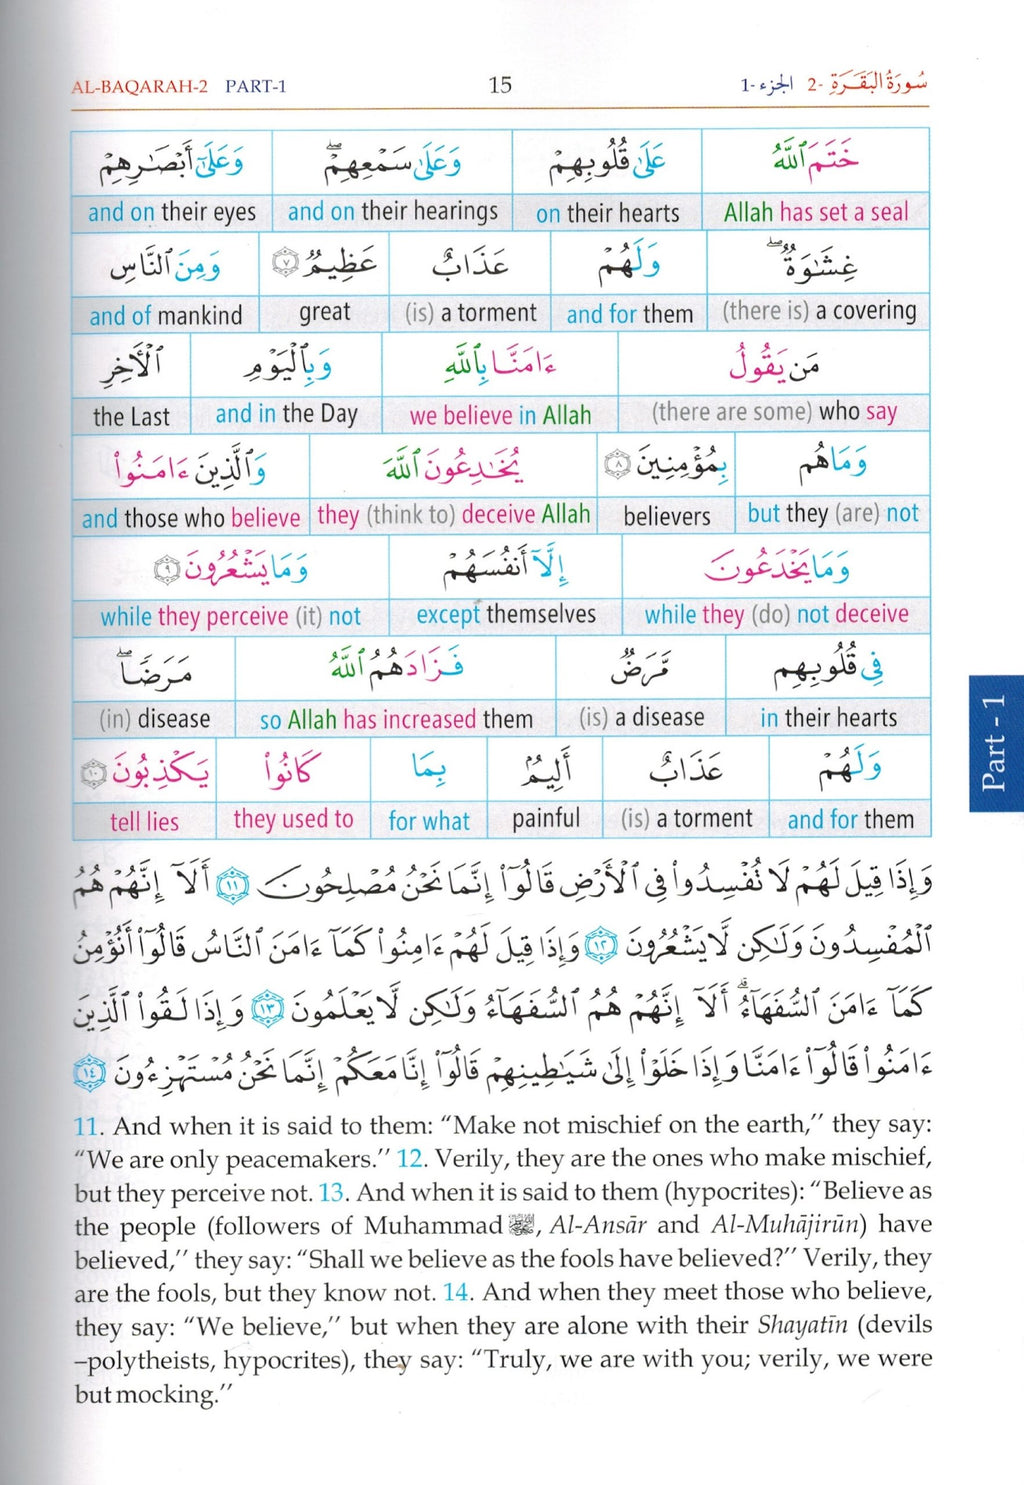 AL-BAQARAH-2 PART-1 15 الجزء -1 سُورَةُ الْبَقَرَةِ -2
خَتَمَ ٱللَّهُ عَلَىٰ قُلُوبِهِمْ وَعَلَىٰ سَمْعِهِمْ ۖ وَعَلَىٰٓ أَبْصَـٰرِهِمْ
Allah has set a seal on their hearts and on their hearings and on their eyes
غِشَـٰوَةٌ ۖ وَلَهُمْ عَذَابٌ عَظِيمٌ ٧ وَمِنَ ٱلنَّاسِ
(there is) a covering and for them (is) a torment great and of mankind
مَن يَقُولُ ءَامَنَّا بِٱللَّهِ وَبِٱلْيَوْمِ ٱلْأَخِرِ
(there are some) who say we believe in Allah and in the Day the Last
وَمَا هُم بِمُؤْمِنِينَ ٨ يُخَـٰدِعُونَ ٱللَّهَ وَٱلَّذِينَ ءَامَنُوا۟
but they (are) not believers they (think to) deceive Allah and those who believe
وَمَا يَخْدَعُونَ إِلَّآ أَنفُسَهُمْ وَمَا يَشْعُرُونَ ٩
while they (do) not deceive except themselves while they perceive (it) not
فِى قُلُوبِهِم مَّرَضٌ فَزَادَهُمُ ٱللَّهُ مَرَضًا ۖ
in their hearts (is) a disease so Allah has increased them (in) disease
وَلَهُمْ عَذَابٌ أَلِيمٌۢ بِمَا كَانُوا۟ يَكْذِبُونَ ١٠
and for them (is) a torment painful for what they used to tell lies
وَإِذَا قِيلَ لَهُمْ لَا تُفْسِدُوا۟ فِى ٱلْأَرْضِ قَالُوٓا۟ إِنَّمَا نَحْنُ مُصْلِحُونَ ١١ أَلَآ إِنَّهُمْ هُمُ
ٱلْمُفْسِدُونَ وَلَـٰكِن لَّا يَشْعُرُونَ ١٢ وَإِذَا قِيلَ لَهُمْ ءَامِنُوا۟ كَمَآ ءَامَنَ ٱلنَّاسُ قَالُوٓا۟ أَنُؤْمِنُ
كَمَآ ءَامَنَ ٱلسُّفَهَآءُ ۗ أَلَآ إِنَّهُمْ هُمُ ٱلسُّفَهَآءُ وَلَـٰكِن لَّا يَعْلَمُونَ ١٣ وَإِذَا لَقُوا۟ ٱلَّذِينَ
ءَامَنُوا۟ قَالُوٓا۟ ءَامَنَّا وَإِذَا خَلَوْا۟ إِلَىٰ شَيَـٰطِينِهِمْ قَالُوٓا۟ إِنَّا مَعَكُمْ إِنَّمَا نَحْنُ مُسْتَهْزِءُونَ ١٤
11. And when it is said to them: “Make not mischief on the earth,” they say:
“We are only peacemakers.” 12. Verily, they are the ones who make mischief,
but they perceive not. 13. And when it is said to them (hypocrites): “Believe as
the people (followers of Muhammad ﷺ, Al-Ansār and Al-Muhājirūn) have
believed,” they say: “Shall we believe as the fools have believed?” Verily, they
are the fools, but they know not. 14. And when they meet those who believe,
they say: “We believe,” but when they are alone with their Shayatīn (devils
–polytheists, hypocrites), they say: “Truly, we are with you; verily, we were
but mocking.”
Part - 1